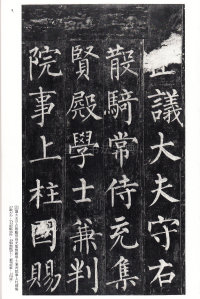 正議大夫守右
散騎常侍充集
賢殿學士兼判
院事上柱國賜